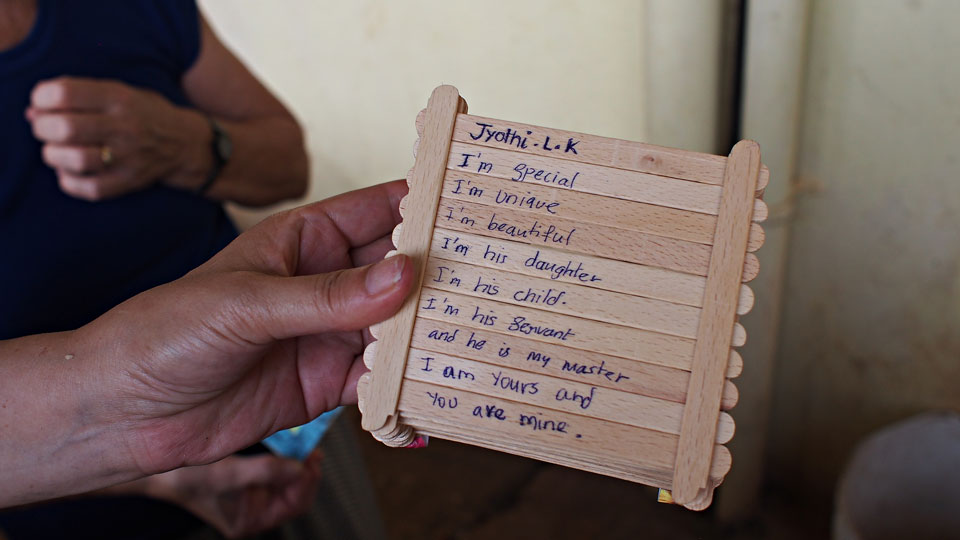 Jyothi.L.K
I'm special
I'm unique
I'm beautiful
I'm his daughter
I'm his child.
I'm his servant
and he is my master
I am yours and
You are mine.